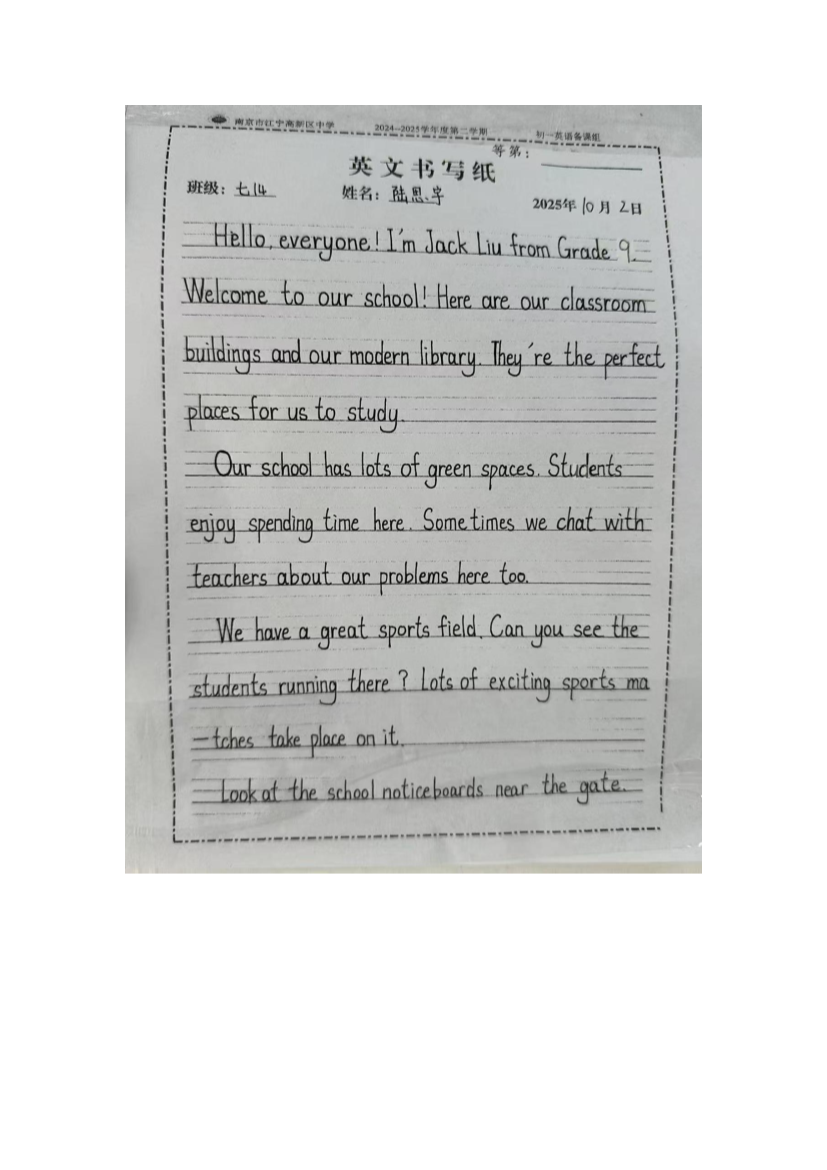 南京市江宁高新区中学 2024—2025学年度第二学期 初一英语备课组
等第：
英文书写纸
班级：七14 姓名：陆思宇 2025年10月2日
Hello, everyone! I'm Jack Liu from Grade 9.
Welcome to our school! Here are our classroom
buildings and our modern library. They're the perfect
places for us to study.
Our school has lots of green spaces. Students
enjoy spending time here. Sometimes we chat with
teachers about our problems here too.
We have a great sports field. Can you see the
students running there? Lots of exciting sports ma
-tches take place on it.
Look at the school noticeboards near the gate.